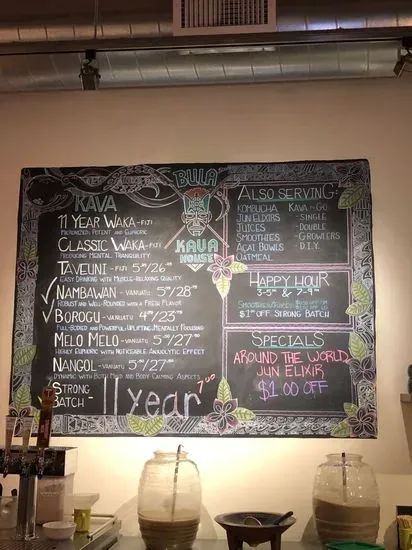 BULA
KAVA HOUSE
KAVA
11 YEAR WAKA - FIJI
MICRONIZED, POTENT AND EUPHORIC
CLASSIC WAKA - FIJI
PRODUCING MENTAL TRANQUILITY
TAVEUNI - FIJI 5oz/26
EASY DRINKING WITH MUSCLE-RELAXING QUALITY
NAMBAWAN - VANUATU 5oz/28
ROBUST AND WELL-ROUNDED WITH A FRESH FLAVOR
BOROGU - VANUATU 4oz/23
FULL-BODIED AND POWERFUL; UPLIFTING, MENTALLY FOCUSING
MELO MELO - VANUATU 5oz/27
HIGHLY EUPHORIC WITH NOTICEABLE ANXIOLYTIC EFFECT
NANGOL - VANUATU 5oz/27
DYNAMIC WITH BOTH MIND AND BODY CALMING ASPECTS
STRONG BATCH - 11 year 7.00
ALSO SERVING:
KOMBUCHA
JUN ELIXIRS
JUICES
SMOOTHIES
AÇAI BOWLS
OATMEAL
KAVA TO-GO
- SINGLE
- DOUBLE
- GROWLERS
- D.I.Y.
HAPPY HOUR
3-5 & 7-9
$1 OFF STRONG BATCH
SPECIALS
AROUND THE WORLD
JUN ELIXIR
$1.00 OFF